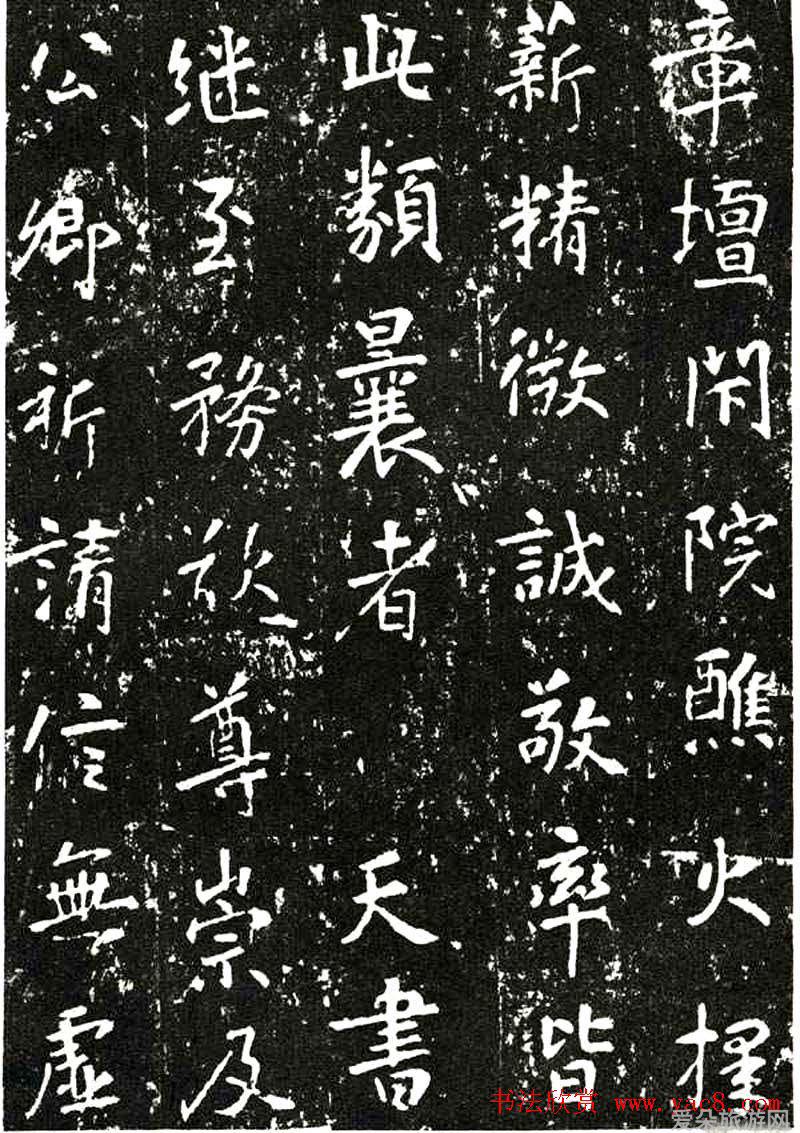 章壇院醮火擇
薪精微誠敬率皆
此類曩者天書
继至務欲尊崇及
公卿祈請信無虛
书法欣赏 www.yac8.com
爱朵旅游网